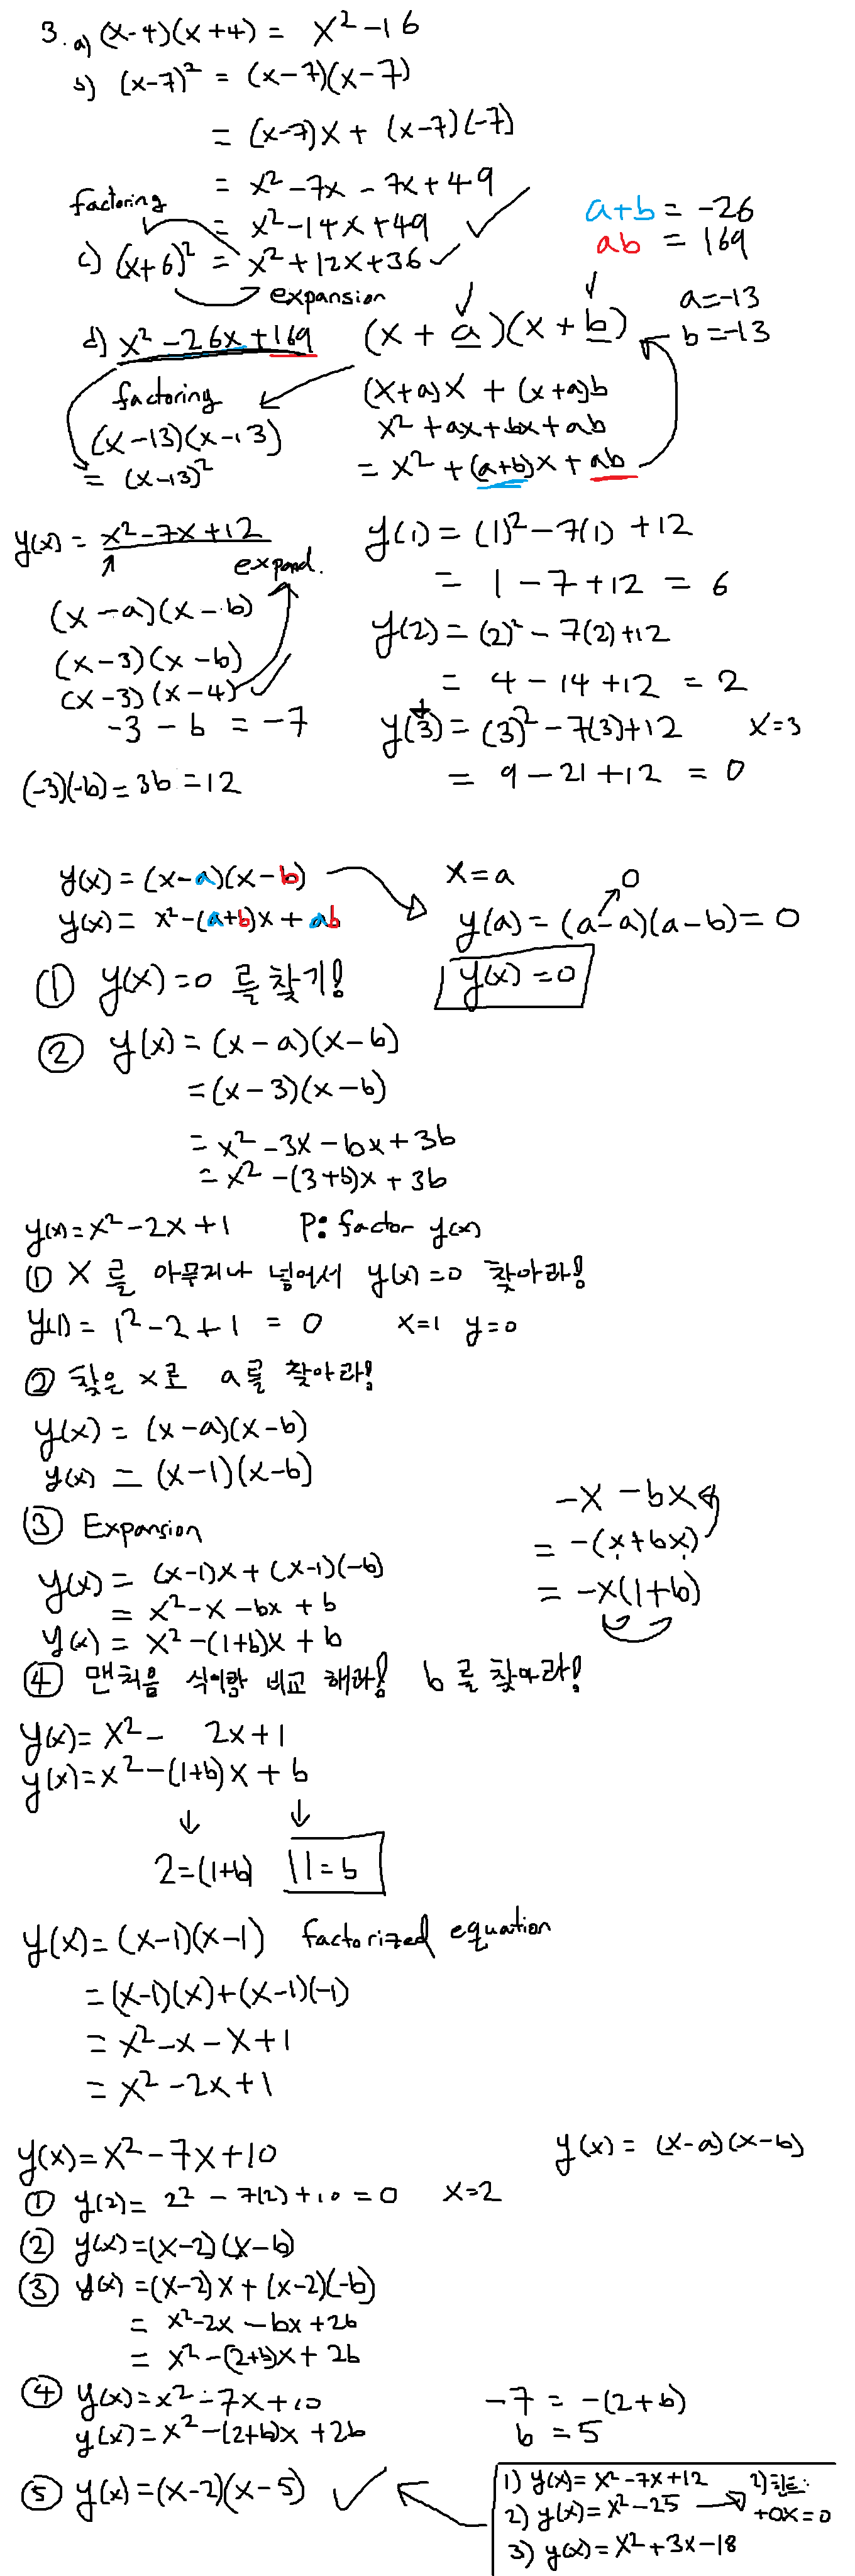 3. a) (x-4)(x+4) = x²-16
b) (x-7)² = (x-7)(x-7)
= (x-7)x + (x-7)(-7)
= x²-7x-7x+49
= x²-14x+49
factoring
c) (x+6)² = x²+12x+36
expansion
a+b = -26
ab = 169
a=-13
b=-13
d) x²-26x+169
factoring
(x-13)(x-13)
= (x-13)²
(x+a)(x+b)
(x+a)x + (x+a)b
x²+ax+bx+ab
= x²+(a+b)x+ab
y(x) = x²-7x+12
expand.
(x-a)(x-b)
(x-3)(x-b)
(x-3)(x-4)
-3-b = -7
(-3)(-b)=3b=12
y(1) = (1)²-7(1)+12
= 1-7+12 = 6
y(2) = (2)²-7(2)+12
= 4-14+12 = 2
y(3) = (3)²-7(3)+12 x=3
= 9-21+12 = 0
y(x) = (x-a)(x-b)
y(x) = x²-(a+b)x+ab
x=a
0
y(a) = (a-a)(a-b)=0
y(x)=0
① y(x)=0 를 찾기!
② y(x) = (x-a)(x-b)
=(x-3)(x-b)
= x²-3x-bx+3b
= x²-(3+b)x+3b
y(x)=x²-2x+1 P: factor y(x)
① X 를 아무거나 넣어서 y(x)=0 찾아라!
y(1) = 1²-2+1 = 0 x=1 y=0
② 찾은 x로 a를 찾아라!
y(x) = (x-a)(x-b)
y(x) = (x-1)(x-b)
③ Expansion
y(x) = (x-1)x+(x-1)(-b)
= x²-x-bx+b
y(x) = x²-(1+b)x+b
-x-bx
= -(x+bx)
= -x(1+b)
④ 맨처음 식이랑 비교 해라! b를 찾아라!
y(x)= x²- 2x+1
y(x)=x²-(1+b)x+b
2=(1+b) 1=b
y(x)=(x-1)(x-1) factorized equation
=(x-1)(x)+(x-1)(-1)
= x²-x-x+1
= x²-2x+1
y(x)=x²-7x+10
y(x) = (x-a)(x-b)
① y(2)= 2²-7(2)+10=0 x=2
② y(x)=(x-2)(x-b)
③ y(x)=(x-2)x+(x-2)(-b)
= x²-2x-bx+2b
= x²-(2+b)x+2b
④ y(x)=x²-7x+10
y(x)=x²-(2+b)x+2b
-7 = -(2+b)
b = 5
⑤ y(x)=(x-2)(x-5)
1) y(x)= x²-7x+12
2) y(x)=x²-25
3) y(x)=x²+3x-18
2) 힌트:
+0x=0